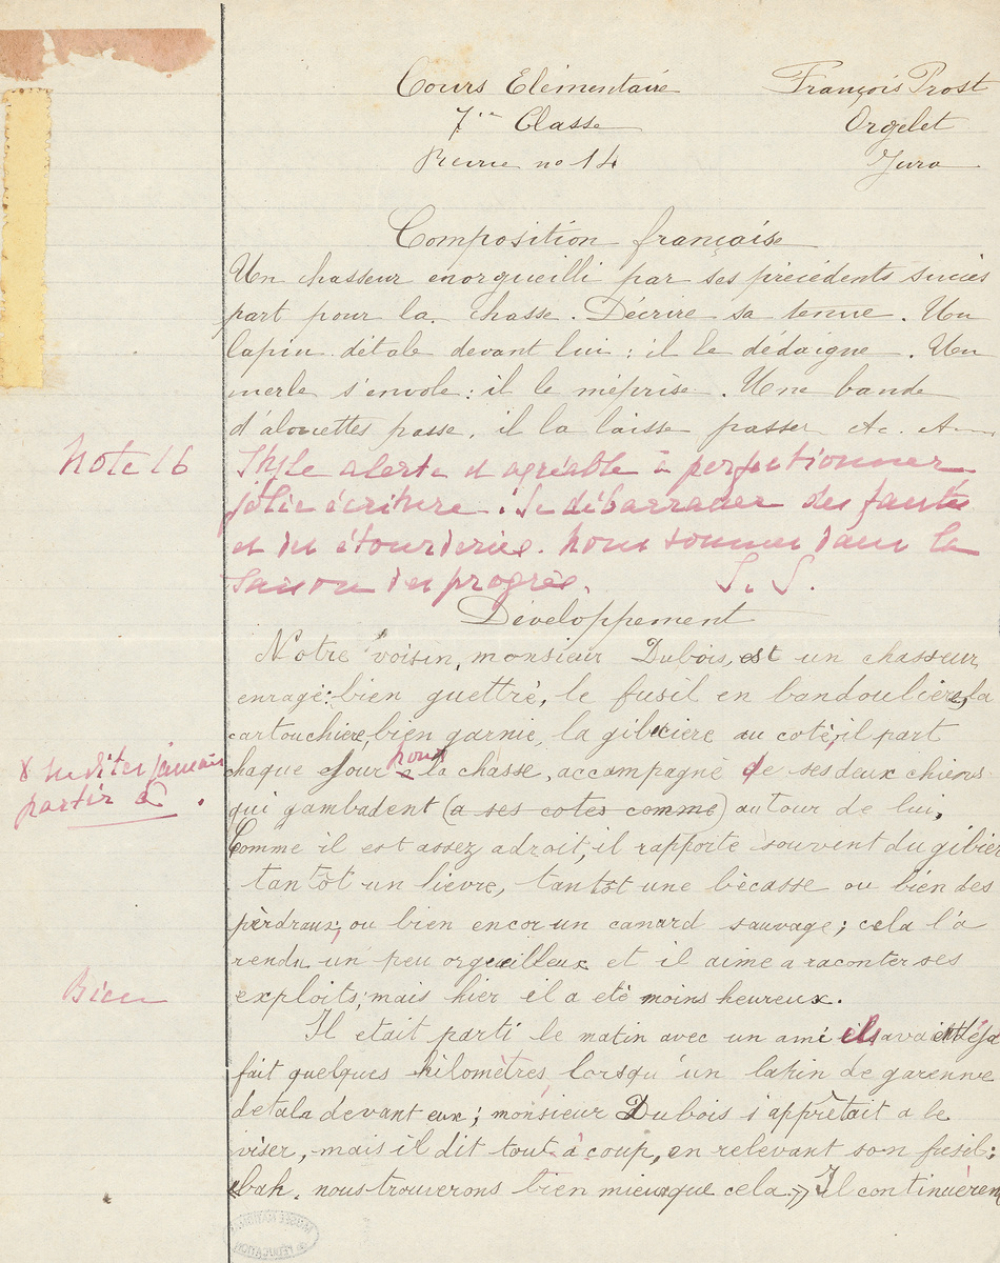 Cours Elémentaire
François Prost
7ie Classe
Orgelet
Revue no 14
Jura
Composition française
Un chasseur enorgueilli par ses précédents succès
part pour la chasse. Décrire sa tenue. Un
lapin détale devant lui : il le dédaigne. Un
merle s'envole : il le méprise. Une bande
d'alouettes passe, il la laisse passer etc.
Note 16
Style alerte et agréable à perfectionner
jolie écriture. Se débarrasser des fautes
et des étourderies. Nous sommes dans la
saison des progrès. S. S.
Développement
Notre voisin, monsieur Dubois, est un chasseur
enragé : bien guettré, le fusil en bandoulière, la
cartouchière bien garnie, la gibicière au coté, il part
x Ne dites jamais
partir à.
chaque jour pour la chasse, accompagné de ses deux chiens
qui gambadent (a ses cotes comme) autour de lui.
Comme il est assez adroit, il rapporte souvent du gibier
tantôt un lievre, tantôt une bécasse ou bien des
pèrdraux, ou bien encor un canard sauvage ; cela l'a
rendu un peu orgueilleux et il aime a raconter ses
Bien
exploits ; mais hier il a eté moins heureux.
Il etait parti le matin avec un ami ils avaient déja
fait quelques kilomètres lorsqu'un lapin de garenne
detala devant eux ; monsieur Dubois s'apprêtait a le
viser, mais il dit tout à coup, en relevant son fusil :
«bah, nous trouverons bien mieux que cela.» Il continuèrent